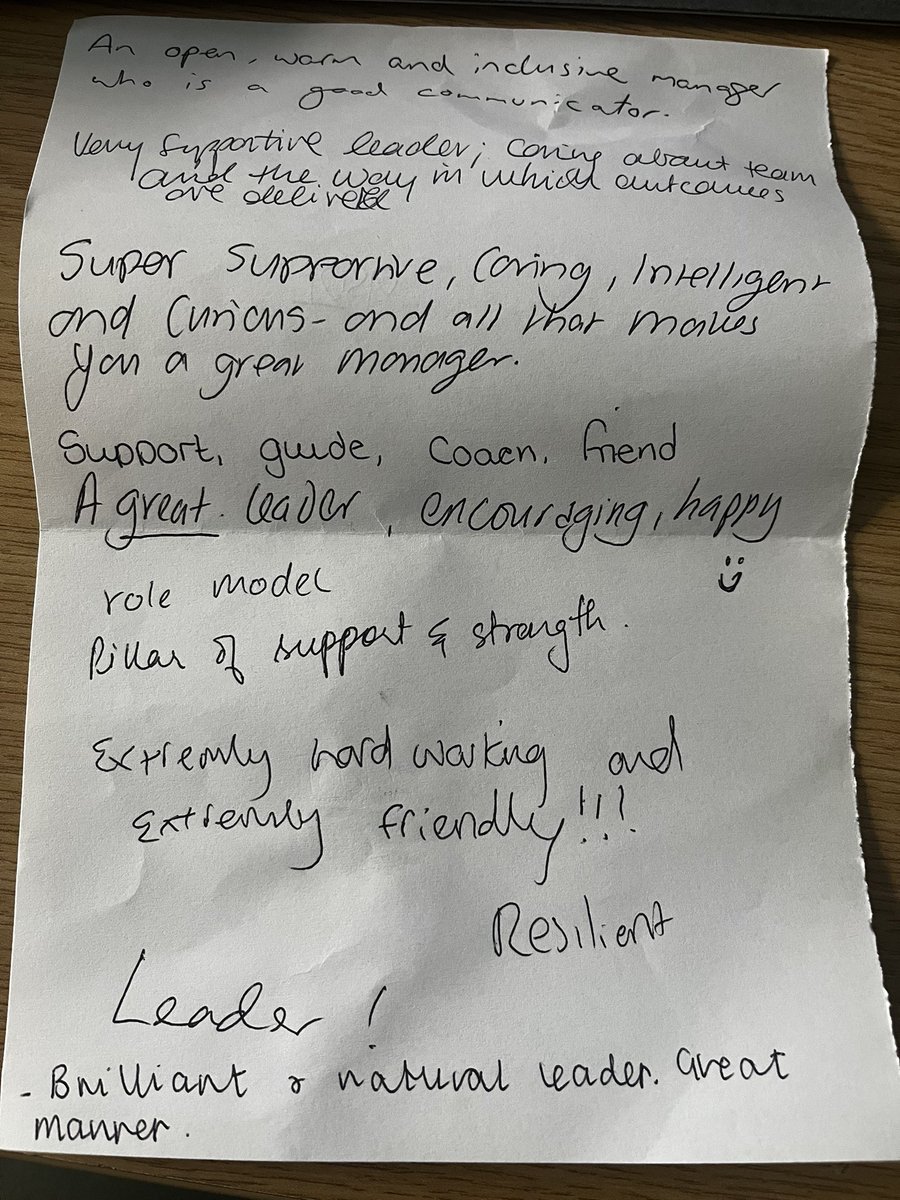 An open, warm and inclusive manager
who is a good communicator.
Very supportive leader; caring about team
and the way in which outcomes
are delivered
Super Supportive, Caring, Intelligent
and Curious - and all that makes
you a great manager.
Support, guide, coach, friend
A great leader, encouraging, happy
:)
role model
Pillar of support & strength.
Extremly hard working and
Extremly friendly!!!
Resilient
Leader!
- Brilliant & natural leader. Great
manner.